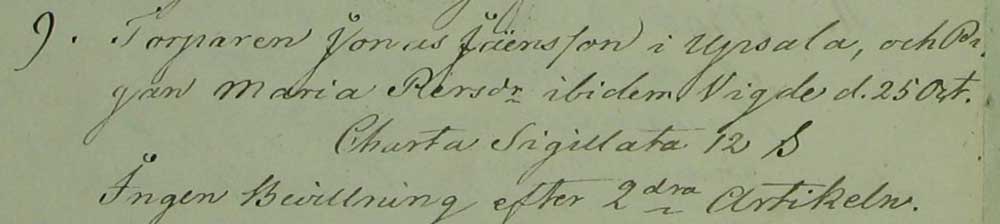 9. Torparen Jonas Jäensson i Upsala, och Pi,
gan Maria Persdr ibidem Vigde d. 25 Oct.
Charta Sigillata 12 ß
Ingen Bevillning efter 2dra Artikeln.